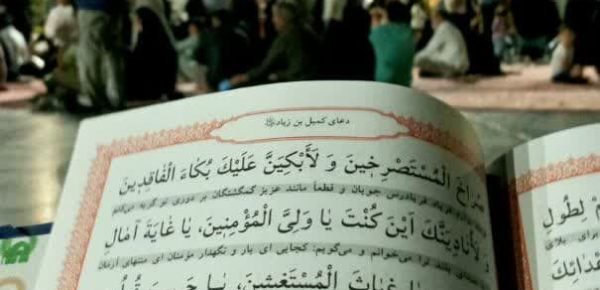 دعای کمیل بن زیاد
صُراخَ الْمُسْتَصْرِخینَ وَ لَأَبْکِیَنَّ عَلَیْكَ بُکاءَ الْفاقِدینَ
فریادرس جویان و قطعاً مانند عزیز گمگشتگان بر دوری تو گریه می‌کنم
وَ لَأُنادِیَنَّكَ أَیْنَ کُنْتَ یا وَلِیَّ الْمُؤْمِنینَ، یا غایَةَ آمالِ
ترا می‌خوانم و می‌گویم: کجایی ای یار و نگهدار مؤمنان ای منتهای آرمان
غِیاثَ الْمُسْتَغیثینَ، یا
لِطُولِ
برای بلای